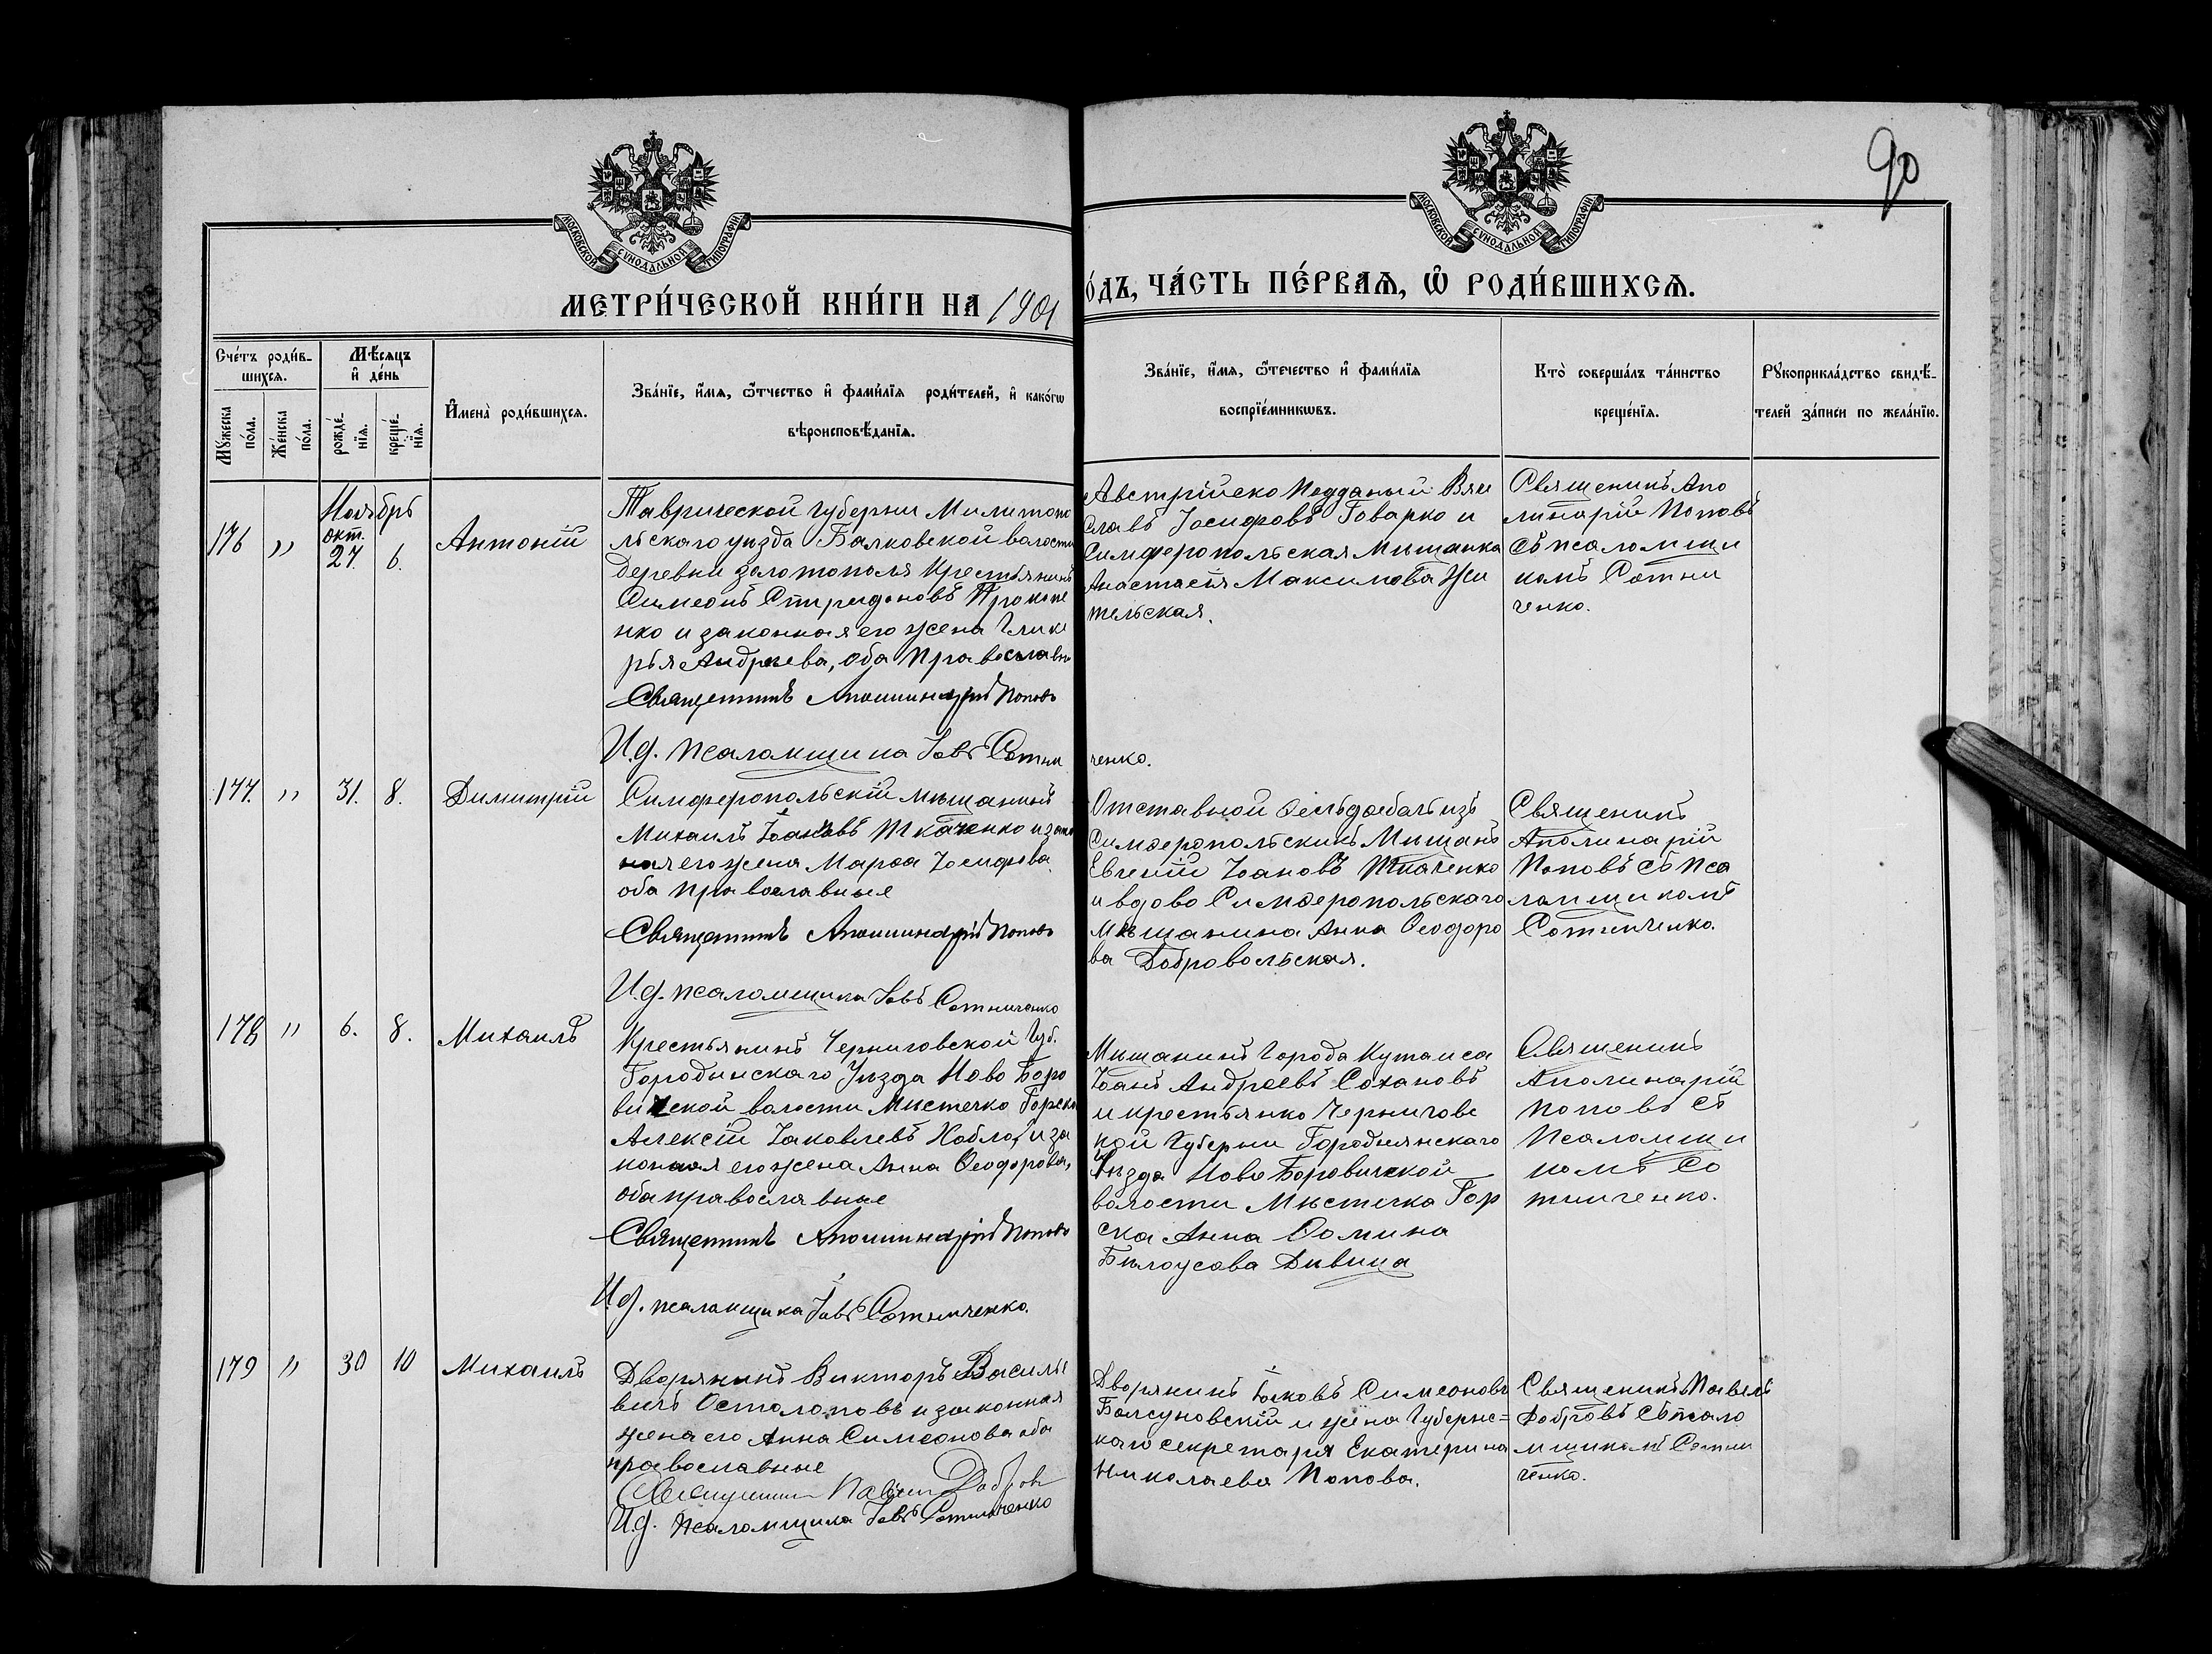 90
МОСКОВСКОЙ СѴНОДАЛЬНОЙ ТИПОГРАФІИ
МОСКОВСКОЙ СѴНОДАЛЬНОЙ ТИПОГРАФІИ
МЕТРИ́ЧЕСКОЙ КНИ́ГИ НА 1901
О́ДЪ, ЧА́СТЬ ПЕ́РВАѦ, Ѿ РОДИ́ВШИХСѦ.
Сче́тъ роди́в-
шихсѧ.
Мѣ́сяцъ
и҆ де́нь
Мꙋ́жеска
по́ла.
Же́нска
по́ла.
рожде́-
нїѧ.
креще́-
нїѧ.
И҆мена̀ роди́вшихсѧ.
Зва́нїе, и҆́мѧ, ѻ҆́тчество и҆ фами́лїѧ роди́телей, и҆ како́гѡ
вѣроисповѣ́данїѧ.
Зва́нїе, и҆́мѧ, ѻ҆́течество и҆ фами́лїѧ
воспрїе́мникѡвъ.
Кто̀ соверша́лъ та́инство
креще́нїѧ.
Рꙋкоприкла́дство свидѣ́-
телей за́писи по жела́нїю.
Ноябрь
окт.
176 " 27. 6. Антоній
Таврической губерніи Милитопо
льскаго уѣзда Балковской волости
Деревни Золотополя Крестьянинъ
Симеонъ Спиридоновъ Прокопе
нко и законная его жена Глике
рья Андреева, оба православн
Священникъ Аполлинарій Поповъ
И.д. псаломщика Іовъ Сотни
Австрійско Подданый Вяче
славъ Іосифовъ Говарко и
Симферопольская Мѣщанка
Анастасія Максимова Жи
тельская.
ченко.
Священикъ Апо
линарій Поповъ
съ псаломщи
комъ Сотни
ченко.
177. " 31. 8. Димитрій
Симферопольскій мѣщанинъ
Михаилъ Іоановъ Ткаченко и зако
ная его жена Марѳа Іосифова
оба православные
Священникъ Аполлинарій Поповъ
И.д. псаломщика Іовъ Сотниченко
Отставной Фельдфебель изъ
Симферопольскихъ Мѣщанъ
Евгеній Іоановъ Ткаченко
и вдово Симферопольскаго
мѣщанина Анна Ѳеодоро
ва Добровольская.
Священикъ
Аполинарій
Поповъ съ Пса
ломщикомъ
Сотниченко.
178 " 6. 8. Михаилъ
Крестьянинъ Черниговской Губ.
Городынскаго Уѣзда Ново Боро
вичской волости Мѣстечко Горска
Алексій Іаковлевъ и за
конная его жена Анна Ѳеодорова,
оба православные
Священникъ Аполлинарій Поповъ
И.д. псаломщика Іовъ Сотниченко.
Мѣщанинъ Города Кутаиса
Іоанъ Андреевъ Сохановъ
и крестьянко Чернигове
кой Губерніи Городнянскаго
Уѣзда Ново Боровичской
волости Мѣстечка Гор
ска Анна Ѳомина
Бѣлоусова Дѣвица
Священикъ
Аполинарій
Поповъ съ
Псаломщи
комъ Со
тниченко.
179 " 30 10 Михаилъ
Дворянинъ Викторъ Василье
вичъ Остолоповъ и законная
жена его Анна Симеонова оба
православные
Священникъ Павелъ Добровъ
И.д. псаломщика Іовъ Сотниченко
Дворянинъ Іаковъ Симеоновъ
Балсуновскій и жена Губернс=
каго секретаря Екатерина
Николаева Попова.
Священикъ Павелъ
Добровъ съ псало
мщикомъ Сотни
ченко.